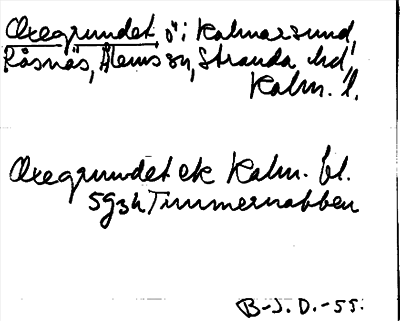 Oxegrundet, ö i Kalmarsund,
Råsnäs, Ålems sn, Stranda hd,
Kalm. l.
Oxegrundet ek Kalm. bl.
5g3h Timmernabben
B-J. D. -55.